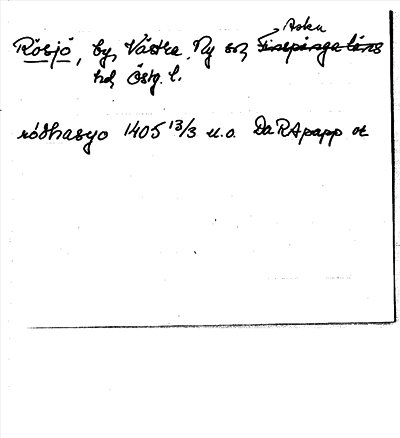 Aska
Rösjö, by, Västra Ny sn, Finspångaläns
hd, Östg. l.
rödhasyo 1405 13/3 u.o. Da RApapp or